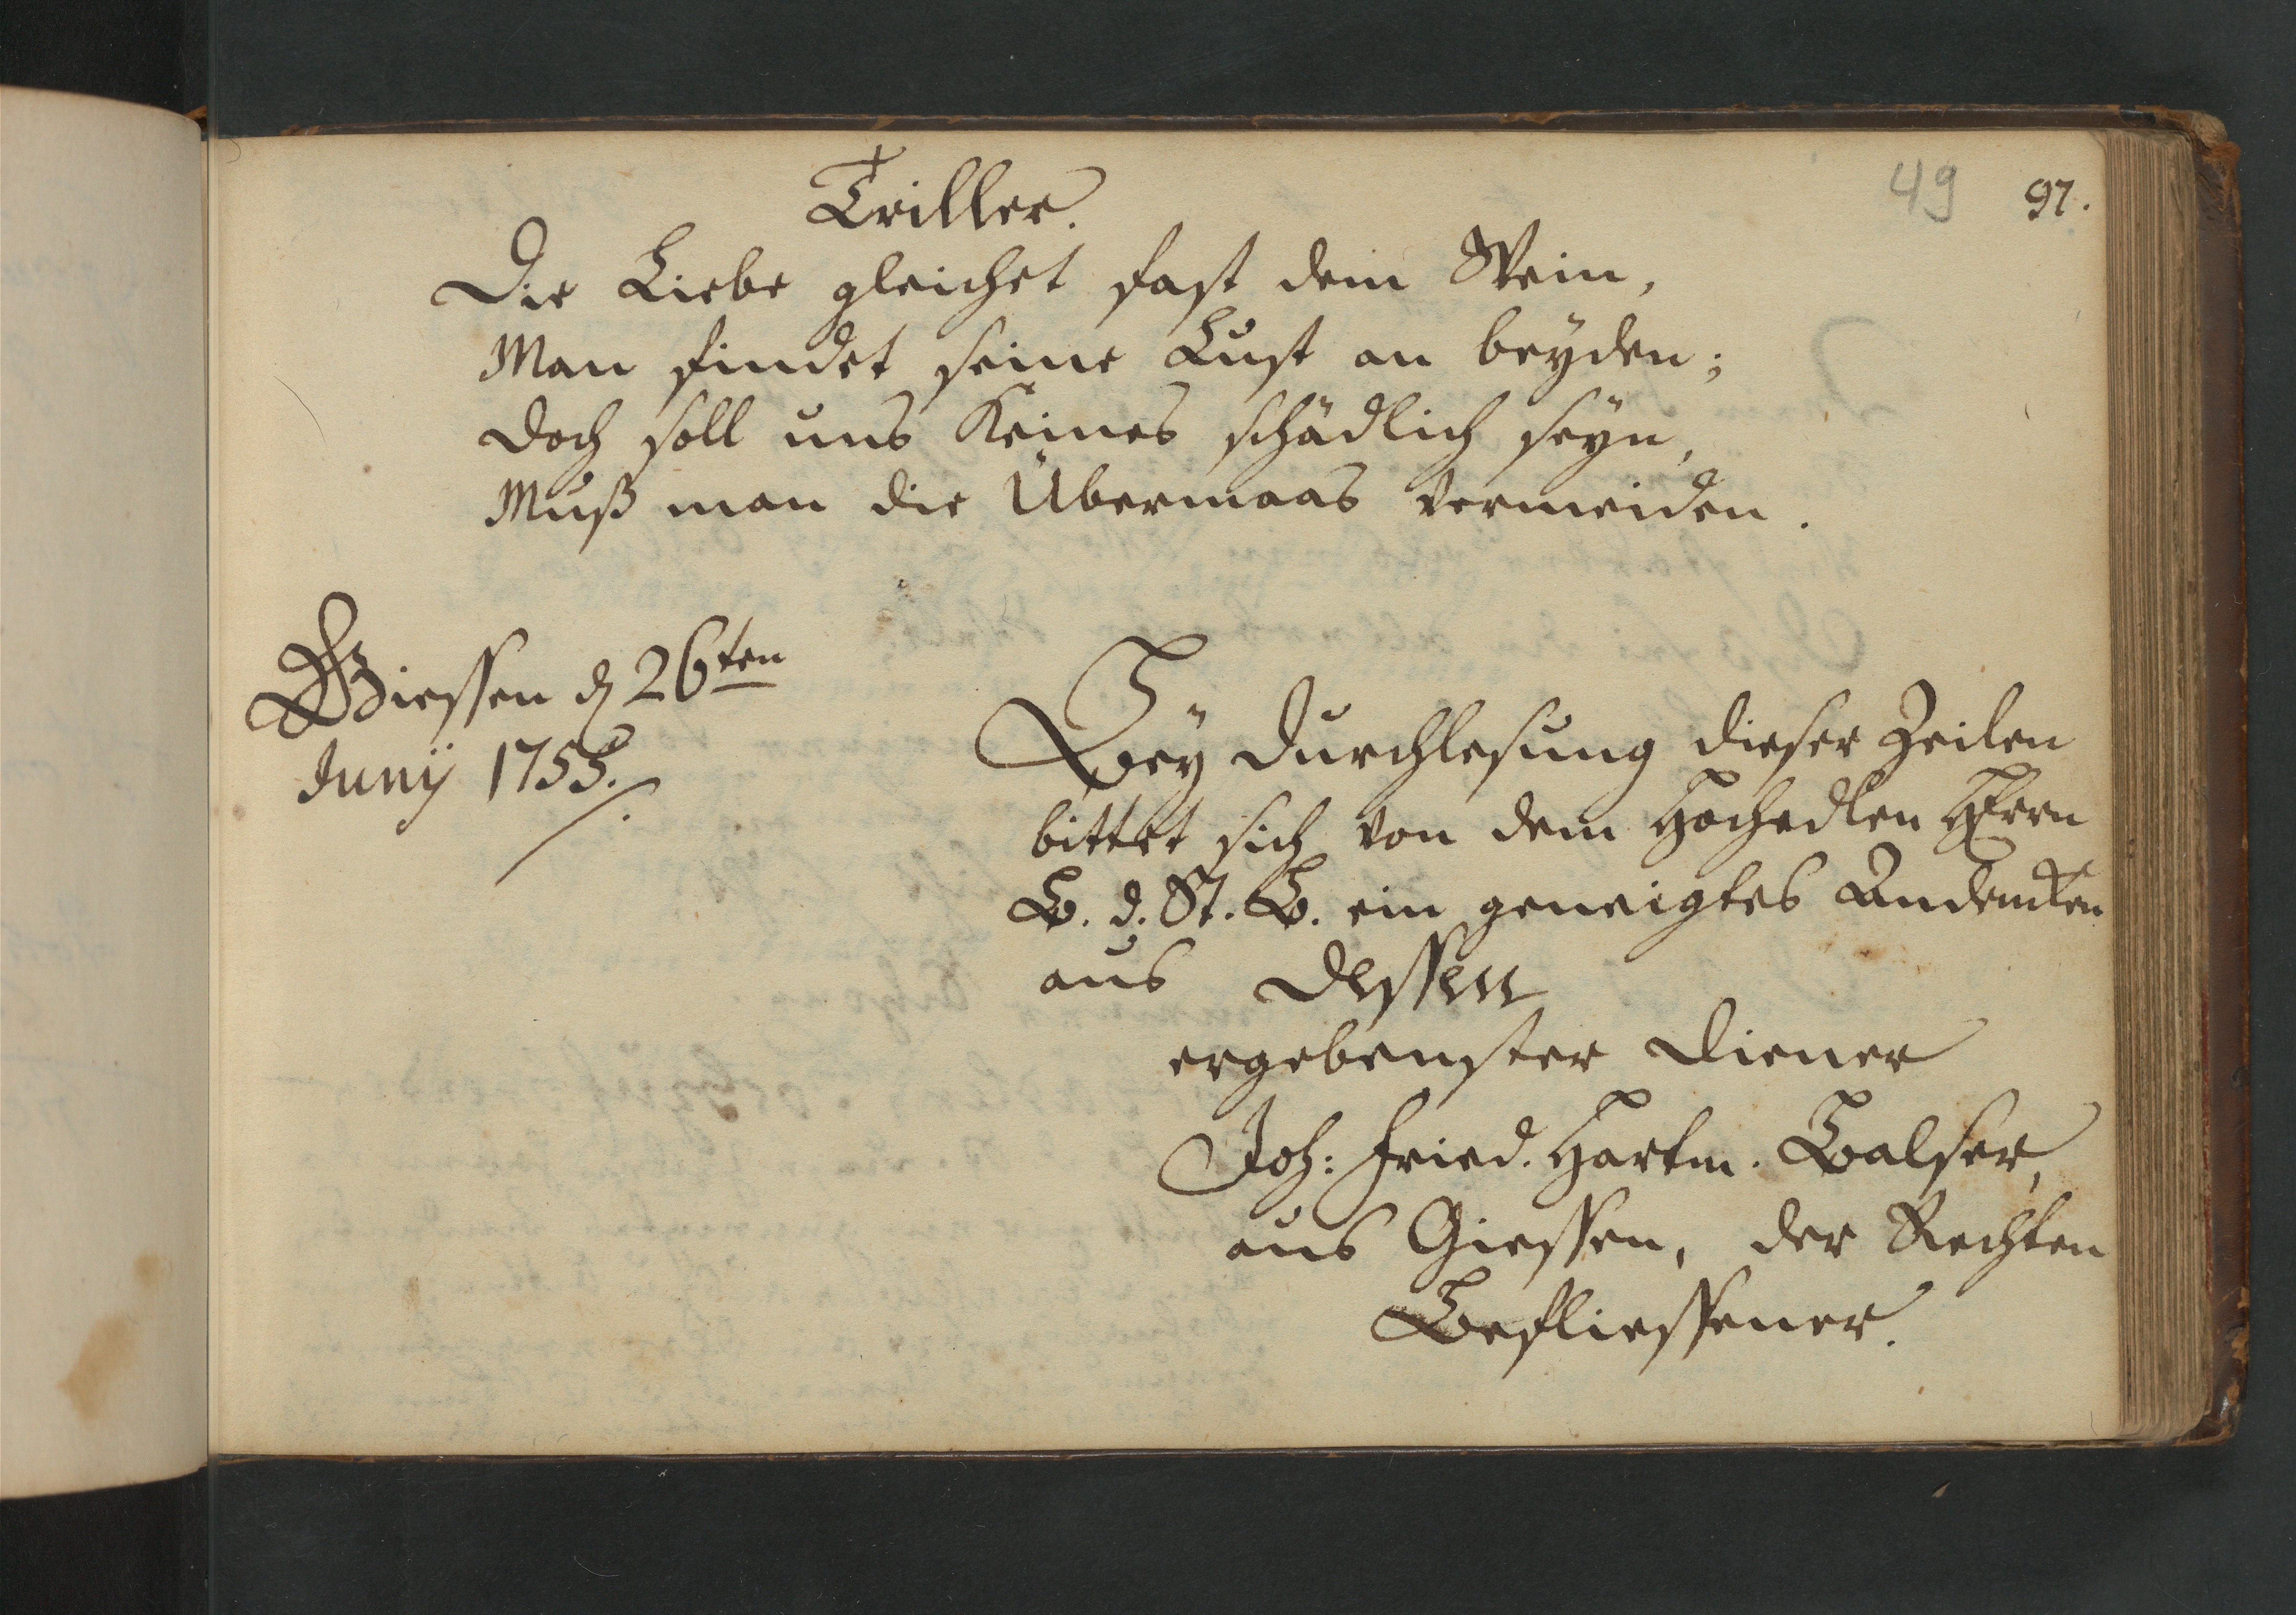 49 97.
Triller.
Die Liebe gleichet fast dem Wein,
Man findet seine Lust an beÿden;
Doch soll uns Keines schädlich seÿn,
Muß man die Übermaas vermeiden.
Giessen d 26ten
Junij 1755.
Beÿ Durchlesung dieser Zeilen
bittet sich von dem Hochedlen HErrn
B. d. St. B. ein geneigtes Andencken
aus Dessen
ergebenster Diener
Joh: Fried. Hartm. Balser,
aus Giessen, der Rechten
Befliessener.